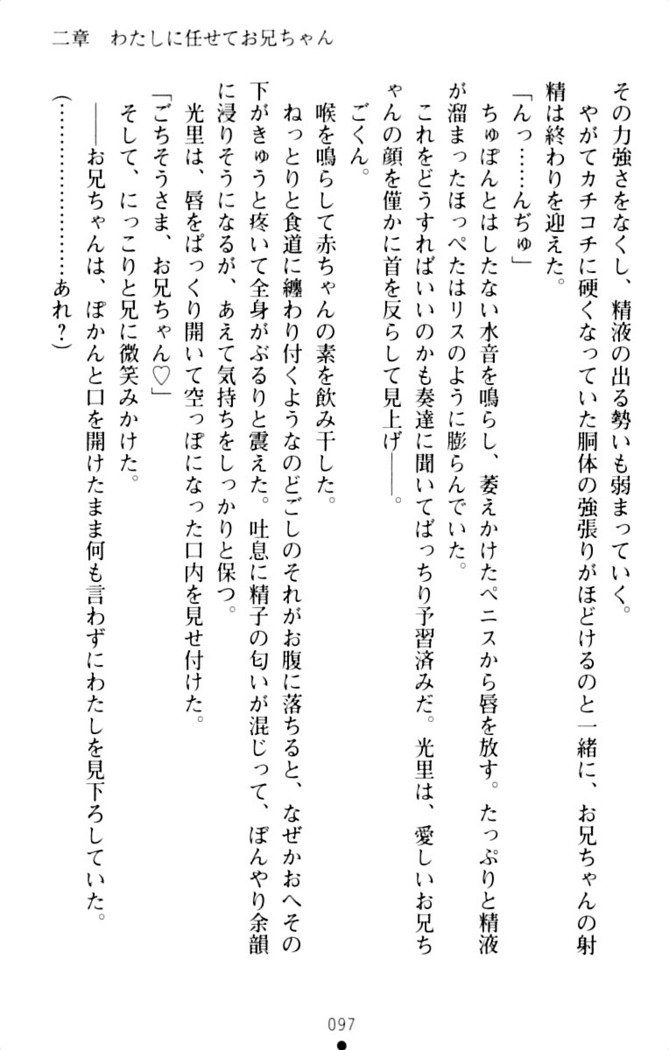 二章　わたしに任せてお兄ちゃん
その力強さをなくし、精液の出る勢いも弱まっていく。
やがてカチコチに硬くなっていた胴体の強張りがほどけるのと一緒に、お兄ちゃんの射
精は終わりを迎えた。
「んっ……んぢゅ」
ちゅぽんとはしたない水音を鳴らし、萎えかけたペニスから唇を放す。たっぷりと精液
が溜まったほっぺたはリスのように膨らんでいた。
これをどうすればいいのかも奏達に聞いてばっちり予習済みだ。光里は、愛しいお兄ち
ゃんの顔を僅かに首を反らして見上げ――。
ごくん。
喉を鳴らして赤ちゃんの素を飲み干した。
ねっとりと食道に纏わり付くようなのどごしのそれがお腹に落ちると、なぜかおへその
下がきゅうと疼いて全身がぶるりと震えた。吐息に精子の匂いが混じって、ぼんやり余韻
に浸りそうになるが、あえて気持ちをしっかりと保つ。
光里は、唇をぱっくり開いて空っぽになった口内を見せ付けた。
「ごちそうさま、お兄ちゃん♡」
そして、にっこりと兄に微笑みかけた。
――お兄ちゃんは、ぽかんと口を開けたまま何も言わずにわたしを見下ろしていた。
(……………………あれ？)
097